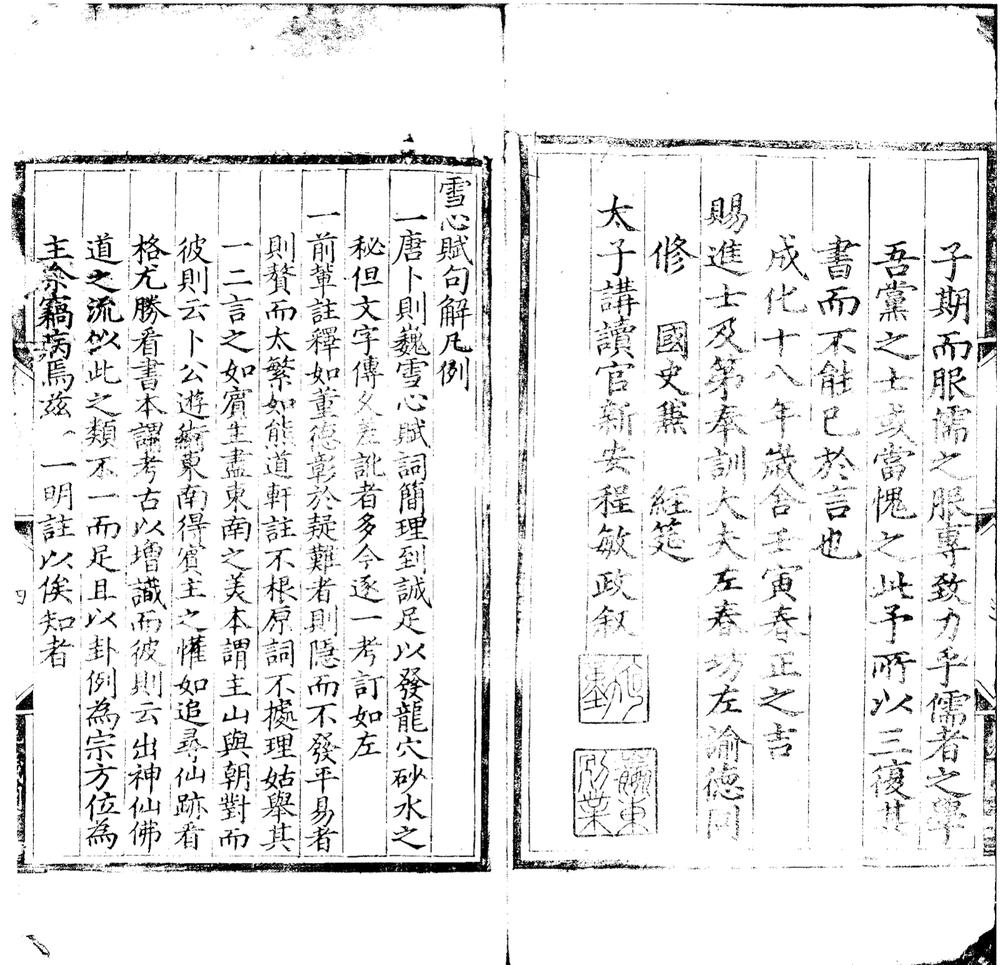 子期而服儒之服專致力乎儒者之學
吾黨之士或當愧之此予所以三復其
書而不能已於言也
成化十八年歲舍壬寅春正之吉
賜進士及第奉訓大夫左春坊左諭德同
修 國史兼 經筵
太子講讀官新安程敏政叙
雪心賦句解凡例
一唐卜則巍雪心賦詞簡理到誠足以發龍穴砂水之
秘但文字傳久差訛者多今逐一考訂如左
一前輩註釋如董德彰於疑難者則隱而不發平易者
則贅而太繁如熊道軒註不根原詞不據理姑舉其
一二言之如賓主盡東南之美本謂主山與朝對而
彼則云卜公遊東南得賓主之懽如追尋仙跡看
格尤勝看書本謂考古以增識而彼則云出神仙佛
道之流似此之類不一而足且以卦例為宗方位為
主余竊病焉茲一明註以俟知者
四